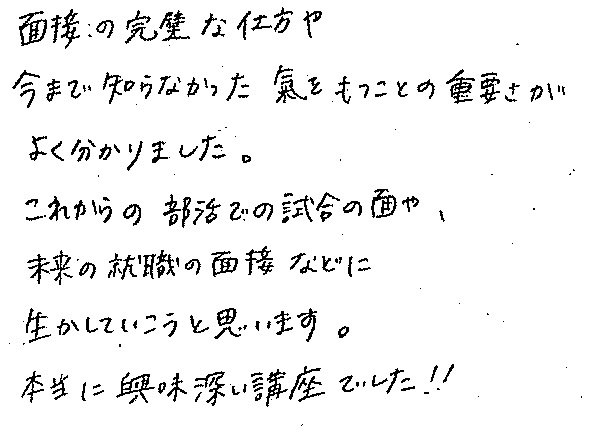 面接の完璧な仕方や
今まで知らなかった氣をもつことの重要さが
よく分かりました。
これからの部活での試合の面や、
未来の就職の面接などに
生かしていこうと思います。
本当に興味深い講座でした!!